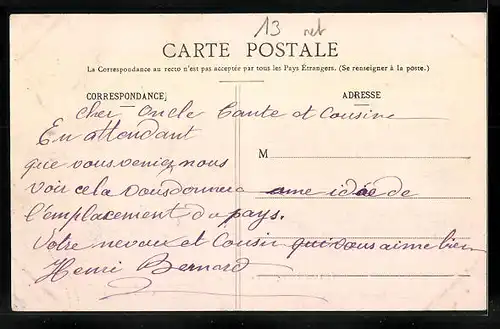 13 net
CARTE POSTALE
La Correspondance au recto n'est pas acceptée par tous les Pays Étrangers. (Se renseigner à la poste.)
CORRESPONDANCE
ADRESSE
Cher Oncle Tante et Cousine
En attendant
M
que vous veniez nous
voir cela vous donnera une idée de
l'emplacement du pays.
Votre neveux et Cousin qui vous aime bien
Henri Bernard